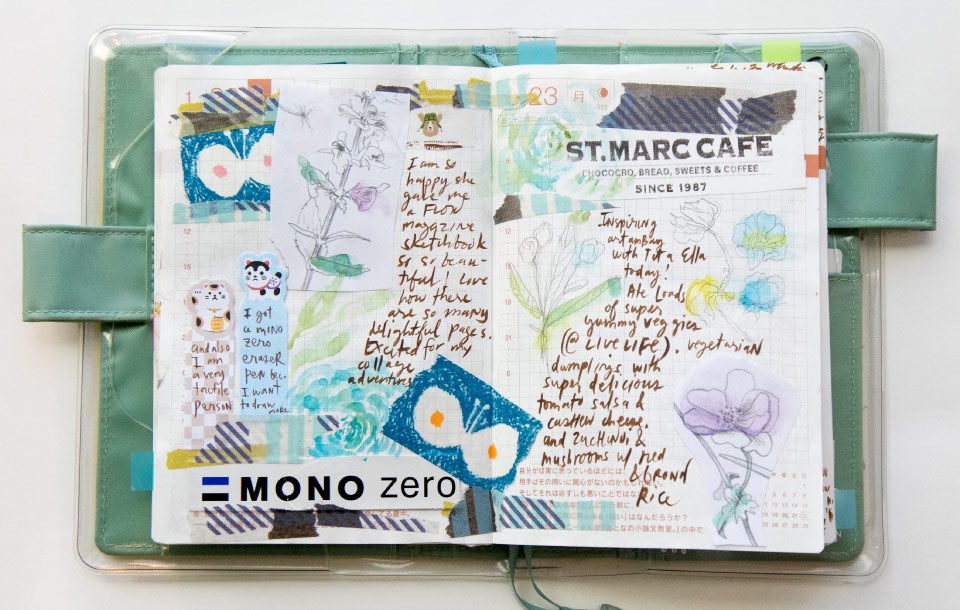 I am so
happy she
gave me
a Flow
magzine
sketchbook
so so beau-
tiful! I love
how there
are so many
delightful pages.
Excited for my
collage
adventures
and also
I am
a very
tactile
person
I got
a mono
zero
eraser
pen bec.
I want
to draw
more.
MONO zero
23 月
ST.MARC CAFE
CHOCOCRO, BREAD, SWEETS & COFFEE
SINCE 1987
Inspiring
with Tita Ella
today!
Ate loads
of super
yummy veggies
(@ LIVELIFE). vegetarian
dumplings with
super delicious
tomato salsa &
cashew cheese.
and zucchini &
mushrooms w/ red
& brown
Rice
自分が切実に思っているほどには、
相手はその問いに関心がないのかも
そしてそれは必ずしも悪いことではな
いう前に、
い」はなんだろうか?
『おとなの小論文教室。』の中で